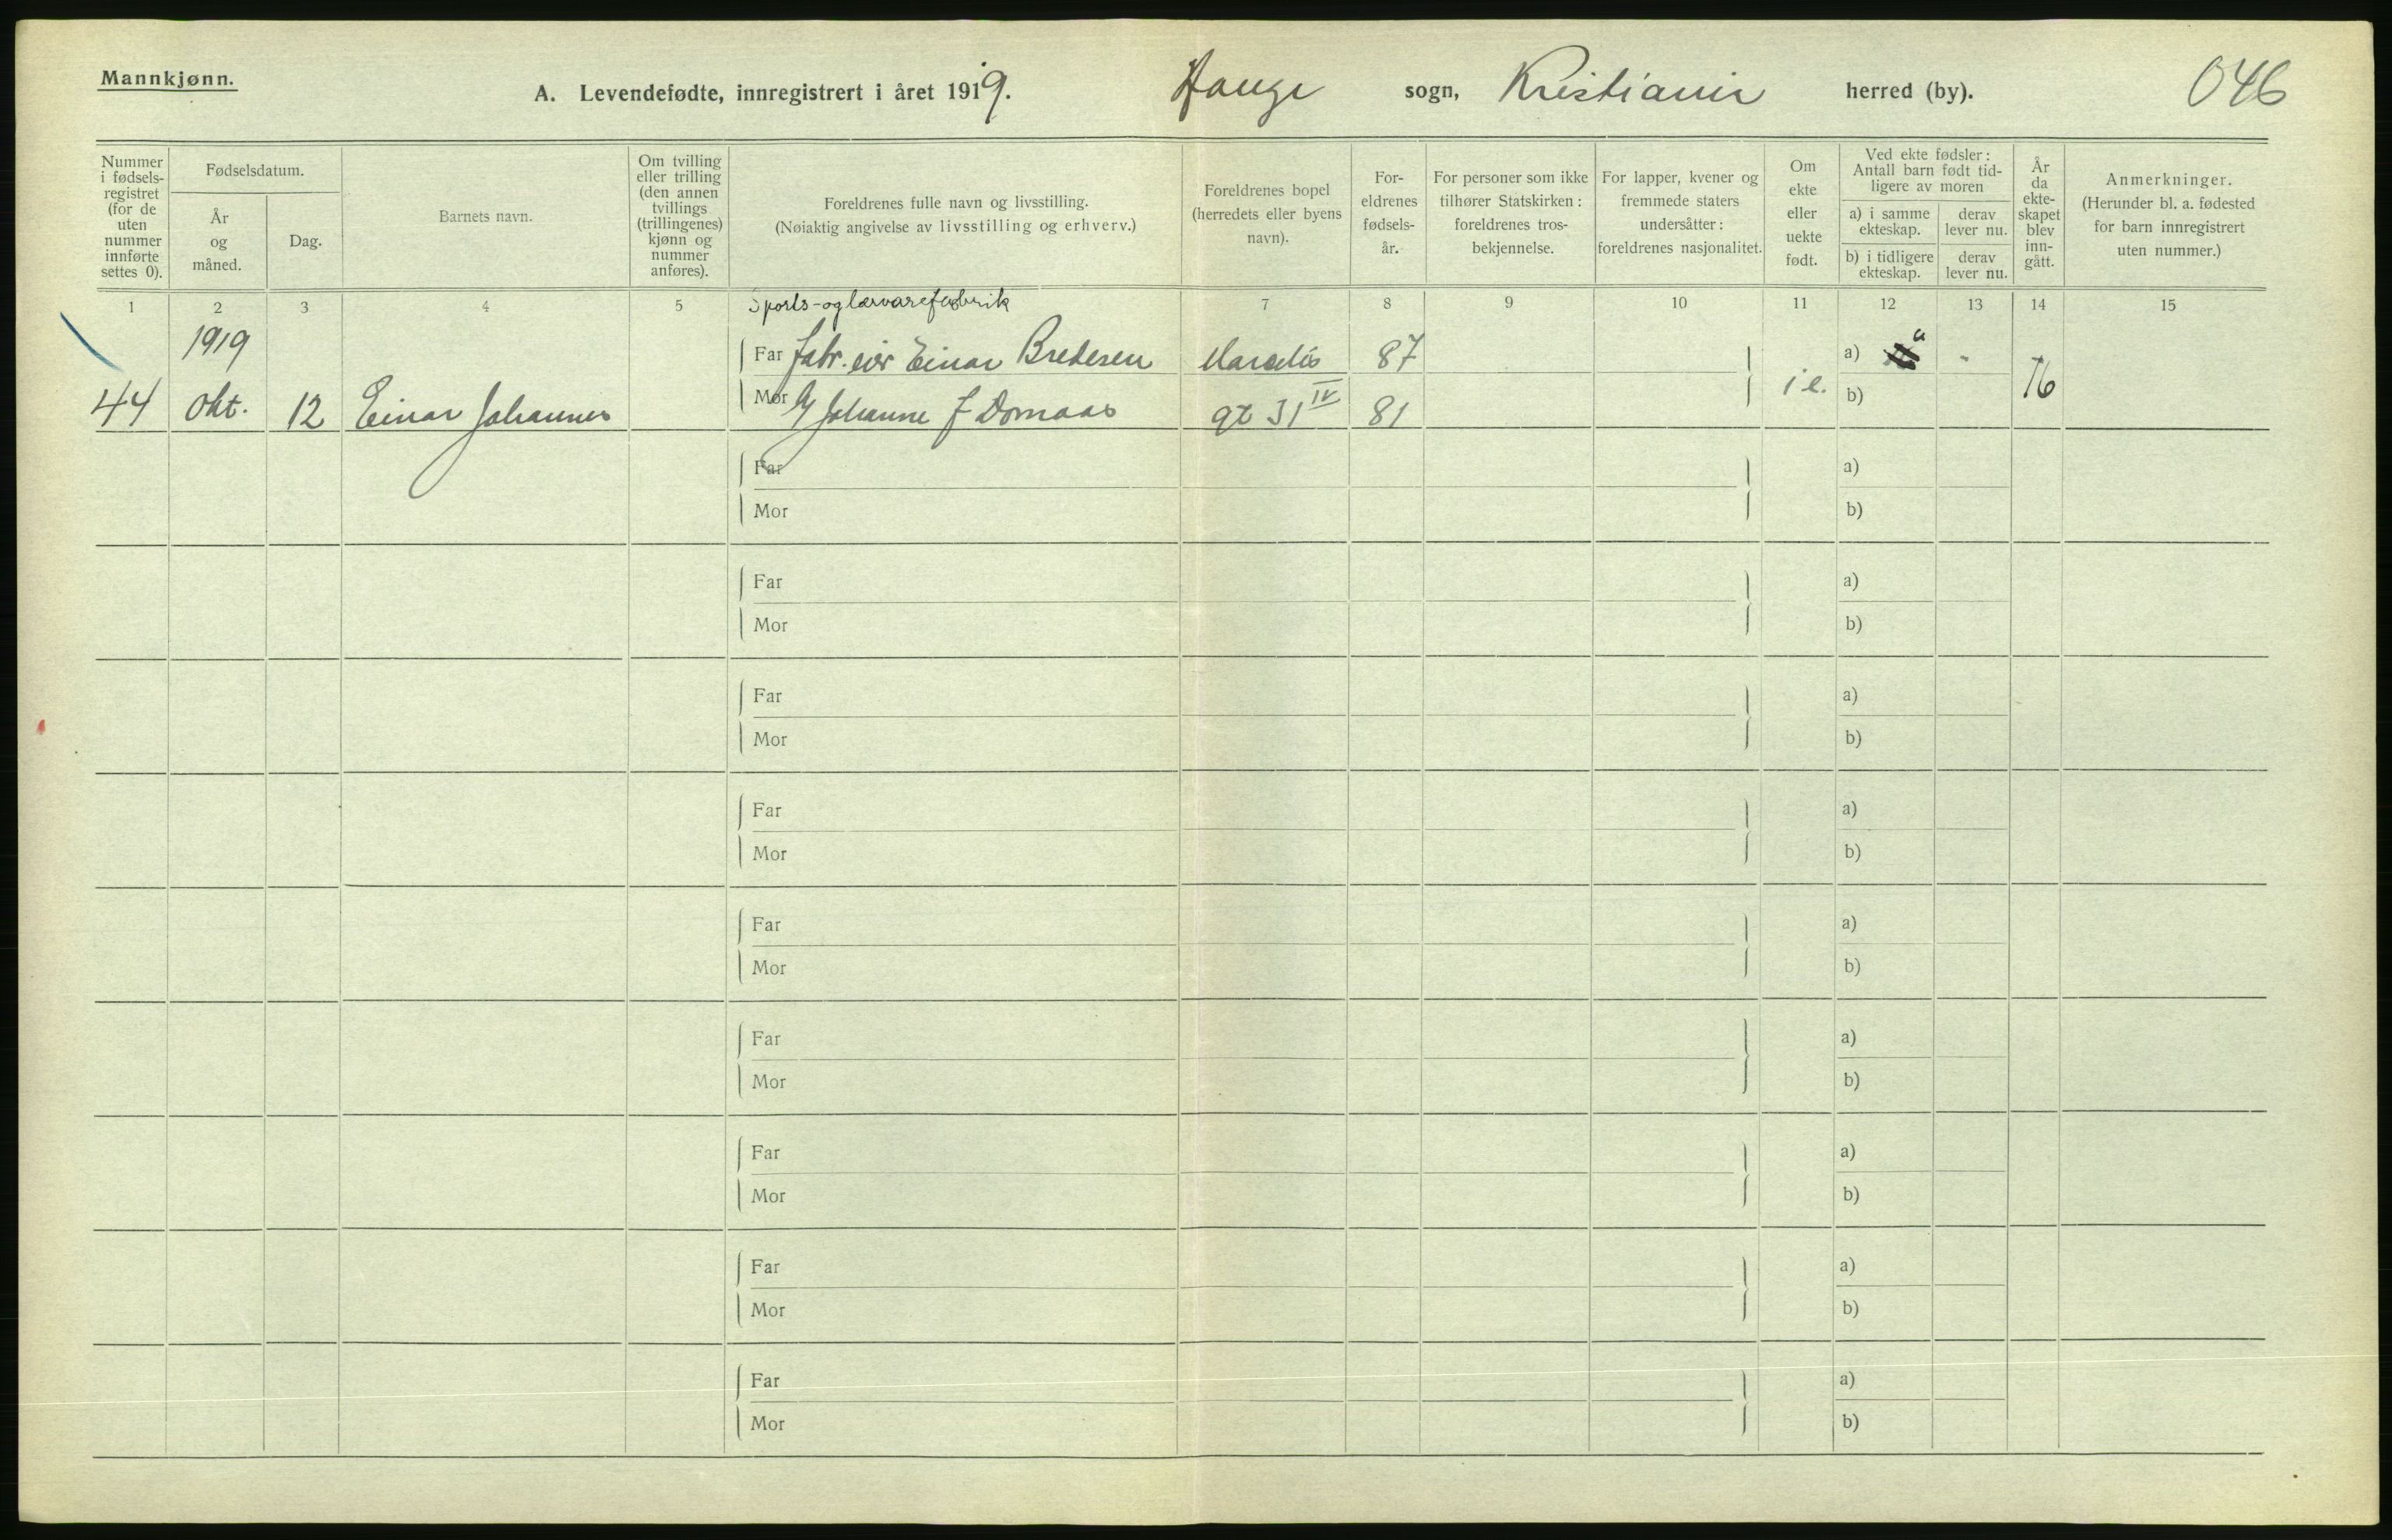 Mannkjønn.
A. Levendefødte, innregistrert i året 1919. Hauge sogn, Kristiania herred (by). 046
Nummer i fødsels-registret (for de uten nummer innførte settes 0).
Fødselsdatum.
År og måned.
Dag.
Barnets navn.
Om tvilling eller trilling (den annen tvillings (trillingenes) kjønn og nummer anføres).
Foreldrenes fulle navn og livsstilling.
(Nøiaktig angivelse av livsstilling og erhverv.)
Foreldrenes bopel (herredets eller byens navn).
For-eldrenes fødsels-år.
For personer som ikke tilhører Statskirken: foreldrenes tros-bekjennelse.
For lapper, kvener og fremmede staters undersåtter: foreldrenes nasjonalitet.
Om ekte eller uekte født.
Ved ekte fødsler: Antall barn født tid-ligere av moren
a) i samme ekteskap.
derav lever nu.
b) i tidligere ekteskap.
derav lever nu.
År da ekte-skapet blev inn-gått.
Anmerkninger.
(Herunder bl. a. fødested for barn innregistrert uten nummer.)
1 2 3 4 5 7 8 9 10 11 12 13 14 15
Sports-og lærvarefabrik
1919 Far fabr. eier Einar Bredesen Marcelis 87 a) -
44 Okt. 12 Einar Johannes Mor Johanne J Domaas gt 31 IV 81 i e. b) 16
Far a)
Mor b)
Far a)
Mor b)
Far a)
Mor b)
Far a)
Mor b)
Far a)
Mor b)
Far a)
Mor b)
Far a)
Mor b)
Far a)
Mor b)
Far a)
Mor b)